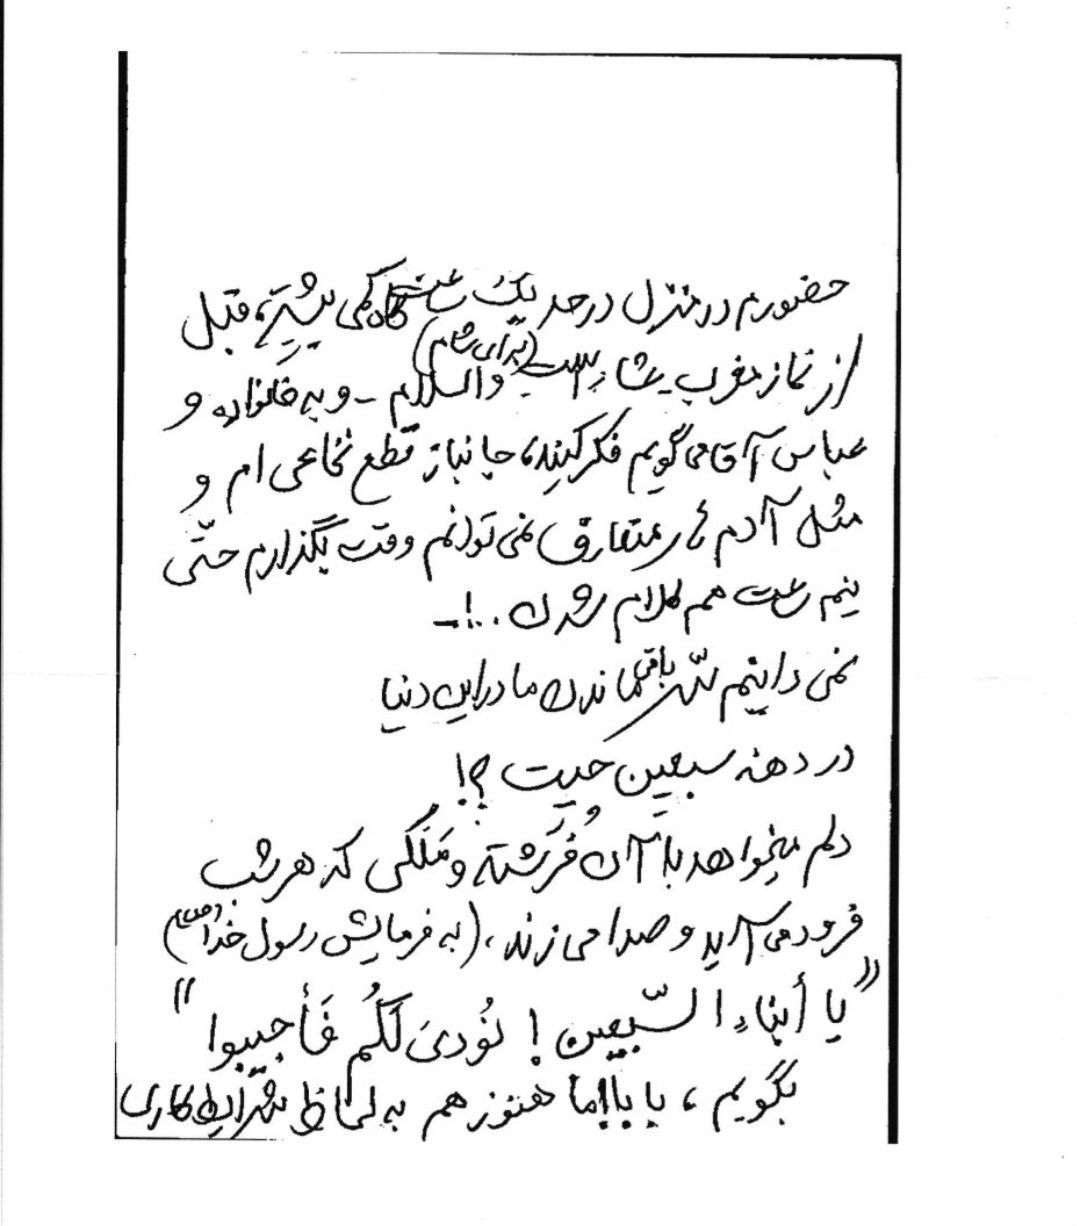 حضورم در منزل در حد یک ساعت گاه کمی بیشتر، قبل
از نماز مغرب عشاء است (برای شام) والسلام - و به خانواده و
عباس آقا می گویم فکر کنید، جانباز قطع نخاعی ام و
مثل آدم های متعارف نمی توانم وقت بگذارم حتّی
نیم ساعت هم کلام شدن ..!-
نمی دانیم سّر باقیماندن ما در این دنیا
در دهنه سبعین چیست ؟!
دلم میخواهد با آن فُرَشته و مَلَکی که هر شب
فرود می آید و صدا می زند، (به فرمایش رسول خدا (ص))
"یا أبناءِ السّبعین ! نُودیَ لَکُم فَأجیبوا"
بگویم، بابا اما هنوز هم به لحاظ شرایط کاری